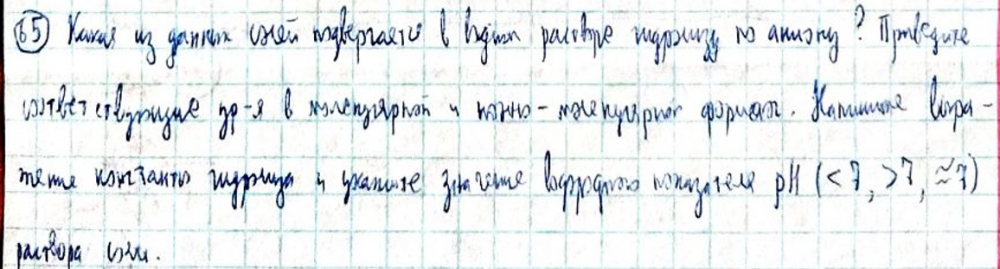 65) Какая из данных солей подвергается в водном растворе гидролизу по аниону? Приведите
соответствующие ур-я в молекулярной и ионно-молекулярной формах. Напишите выра-
жение константы гидролиза и укажите значение водородного показателя pH (< 7, >7, ≈7)
раствора соли.